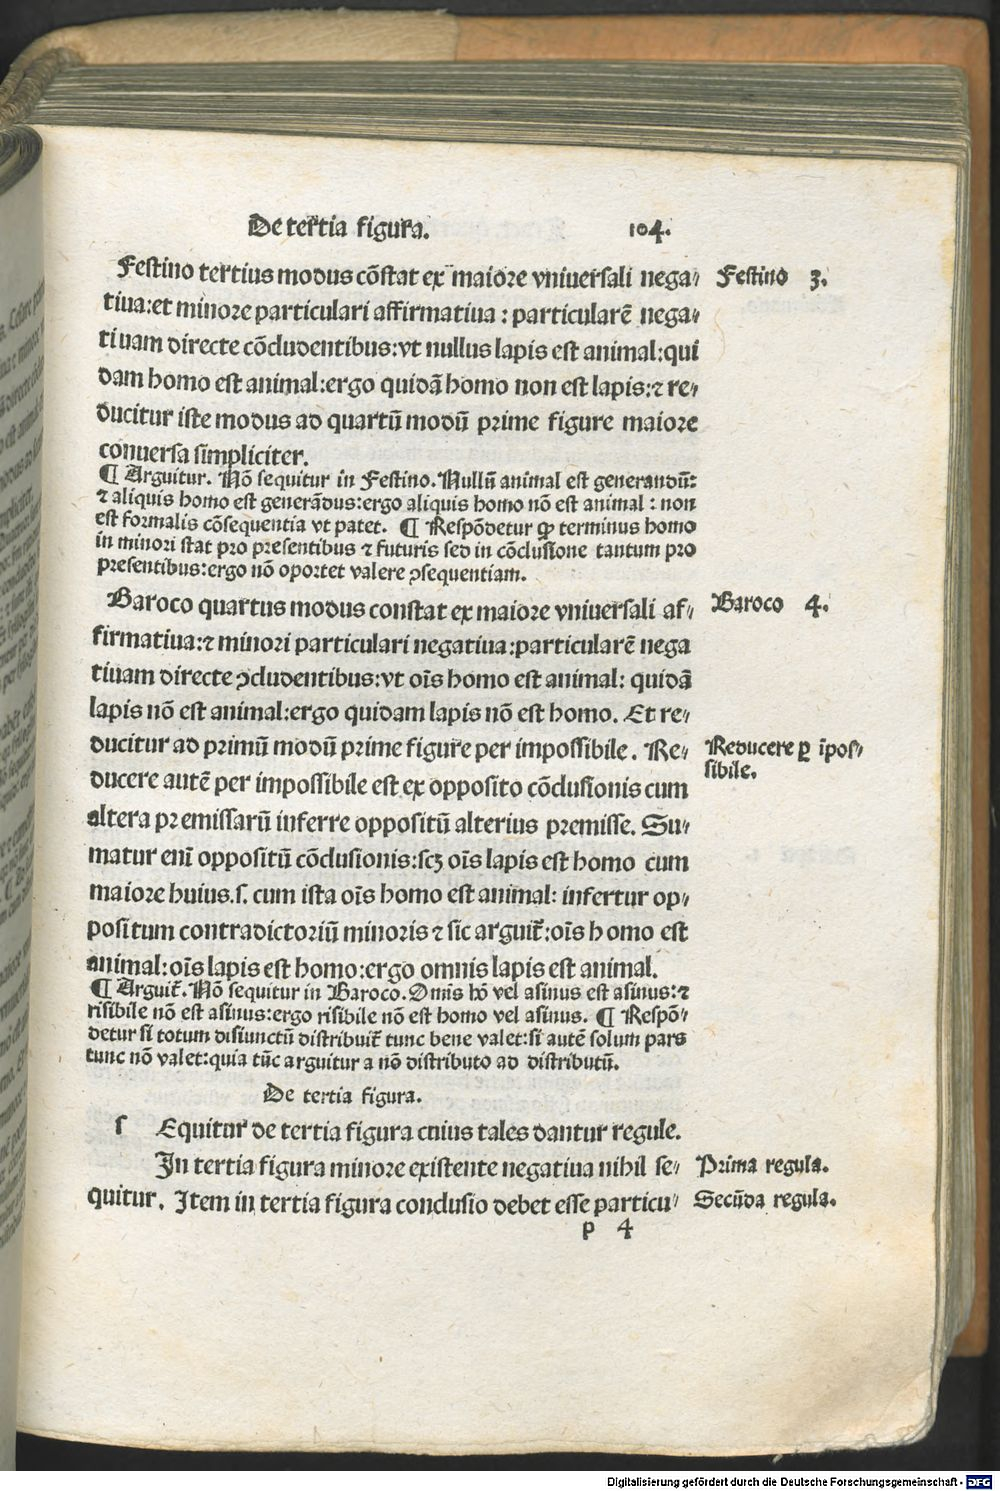 De tertia figura. 104.
Festino tertius modus cōstat ex maiore vniuersali nega⸗ Festino 3.
tiua:et minore particulari affirmatiua : particularē nega⸗
tiuam directe cōcludentibus:vt nullus lapis est animal:qui
dam homo est animal:ergo quidā homo non est lapis:⁊ re⸗
ducitur iste modus ad quartū modū prime figure maiore
conuersa simpliciter.
¶ Arguitur. Nō sequitur in Festino. Nullū animal est generandū:
⁊ aliquis homo est generādus:ergo aliquis homo nō est animal : non
est formalis cōsequentia vt patet. ¶ Respōdetur ꝙ terminus homo
in minori stat pro presentibus ⁊ futuris sed in cōclusione tantum pro
presentibus:ergo nō oportet valere ꝯsequentiam.
Baroco quartus modus constat ex maiore vniuersali af⸗ Baroco 4.
firmatiua:⁊ minori particulari negatiua:particularē nega
tiuam directe ꝯcludentibus:vt oīs homo est animal: quidā
lapis nō est animal:ergo quidam lapis nō est homo. Et re⸗
ducitur ad primū modū prime figure per impossibile. Re⸗ Reducere ꝑ īpos⸗
ducere autē per impossibile est ex opposito cōclusionis cum sibile.
altera premissarū inferre oppositū alterius premisse. Su⸗
matur enī oppositū cōclusionis:scꝫ oīs lapis est homo cum
maiore huius.s. cum ista oīs homo est animal: infertur op⸗
positum contradictoriū minoris ⁊ sic arguit̄:oīs homo est
animal:oīs lapis est homo:ergo omnis lapis est animal.
¶ Arguit̄. Nō sequitur in Baroco. Omīs hō vel asinus est asinus:⁊
risibile nō est asinus:ergo risibile nō est homo vel asinus. ¶ Respō⸗
detur si totum disiunctū distribuit̄ tunc bene valet:si autē solum pars
tunc nō valet:quia tūc arguitur a nō distributo ad distributū.
De tertia figura.
s Equitur de tertia figura cuius tales dantur regule.
In tertia figura minore existente negatiua nihil se⸗ Prima regula.
quitur. Item in tertia figura conclusio debet esse particu⸗ Secūda regula.
p 4
Digitalisierung gefördert durch die Deutsche Forschungsgemeinschaft - DFG